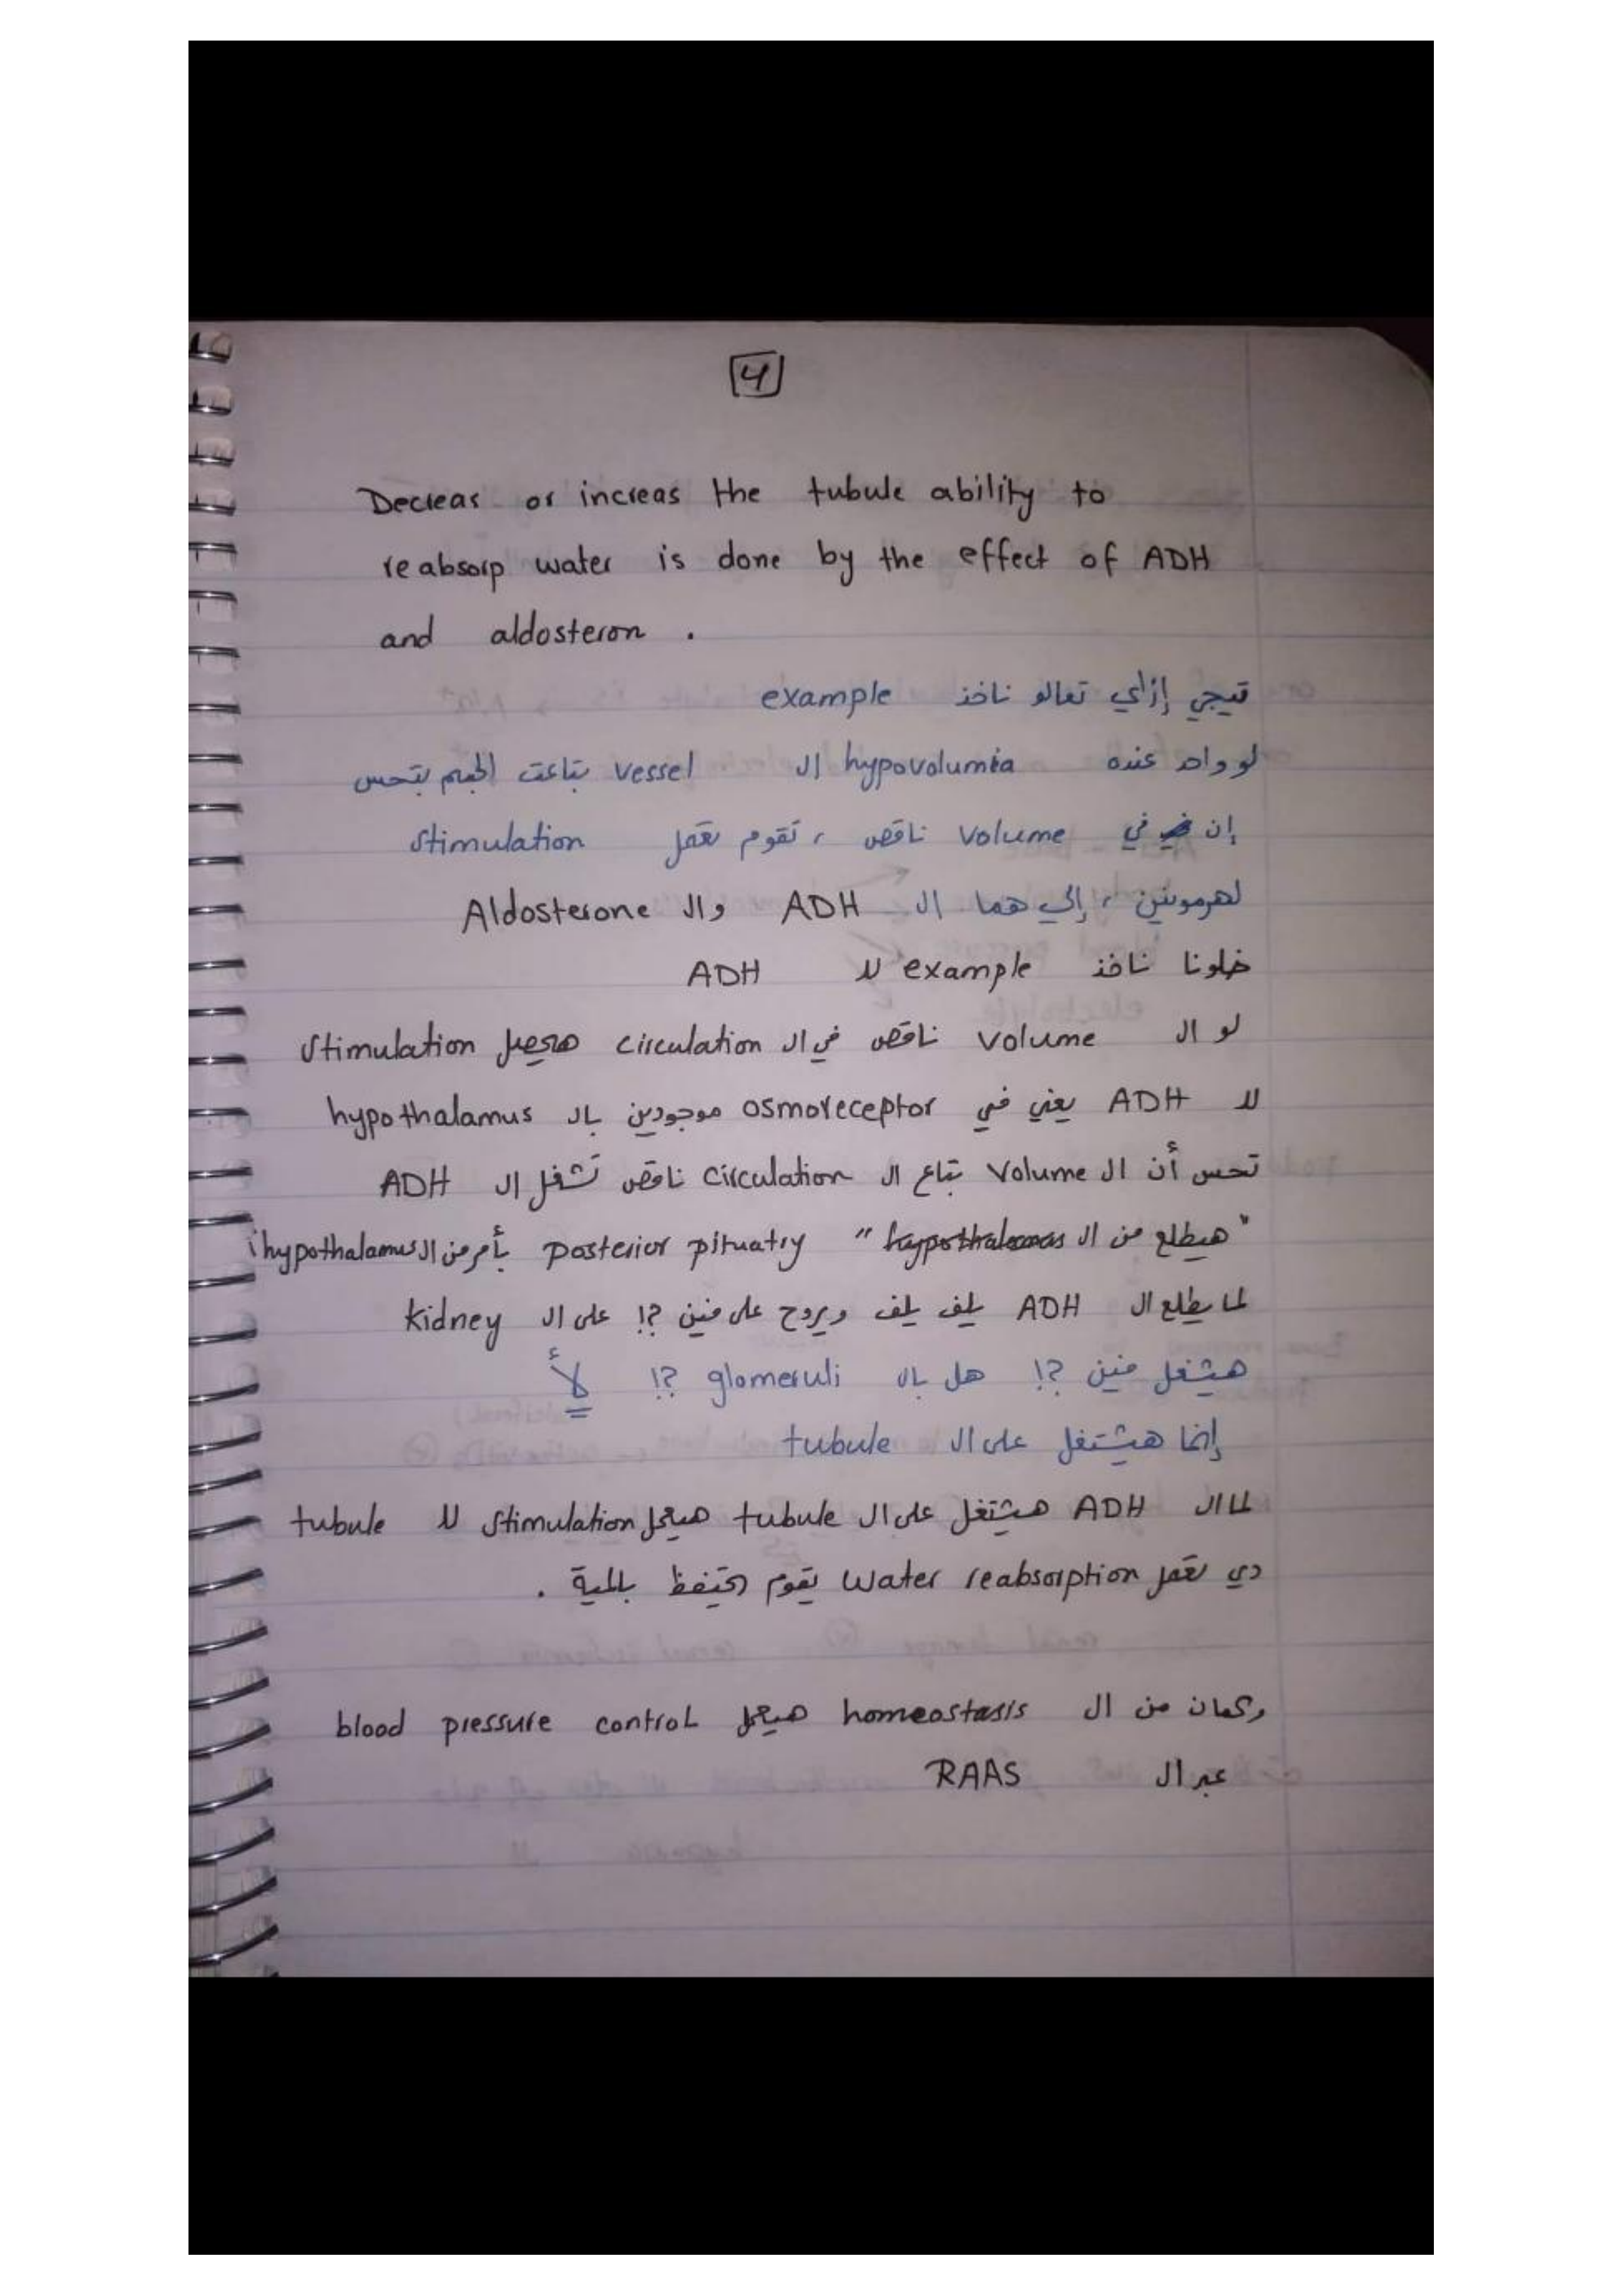 4
Decreas or increas the tubule ability to
reabsorp water is done by the effect of ADH
and aldosteron .
تيجي إزاي تعالو ناخذ example
لو واحد عنده hypovolumia ال vessel بتاعت الجسم بتحس
إن في volume ناقص ، تقوم تعمل stimulation
لهرمونين ، إلي هما ال ADH وال Aldosterone
خلونا ناخذ example لل ADH
لو ال volume ناقص في ال circulation هيحصل stimulation
لل ADH يعني في osmoreceptor موجودين بال hypothalamus
تحس أن ال volume بتاع ال circulation ناقص تشغل ال ADH
"هيطلع من ال hypothalamus" posterior pituatry بأمر من ال hypothalamus
لما يطلع ال ADH يلف يلف ويروح على منين ?! على ال kidney
هيشغل منين ?! هل بال glomeruli ?! لأ
إنما هيشتغل على ال tubule
لما ال ADH هيشتغل على ال tubule هيعمل stimulation لل tubule
دي تعمل water reabsorption يقوم تحتفظ بالمية .
وكمان من ال homeostasis هيعمل blood pressure control
عبر ال RAAS